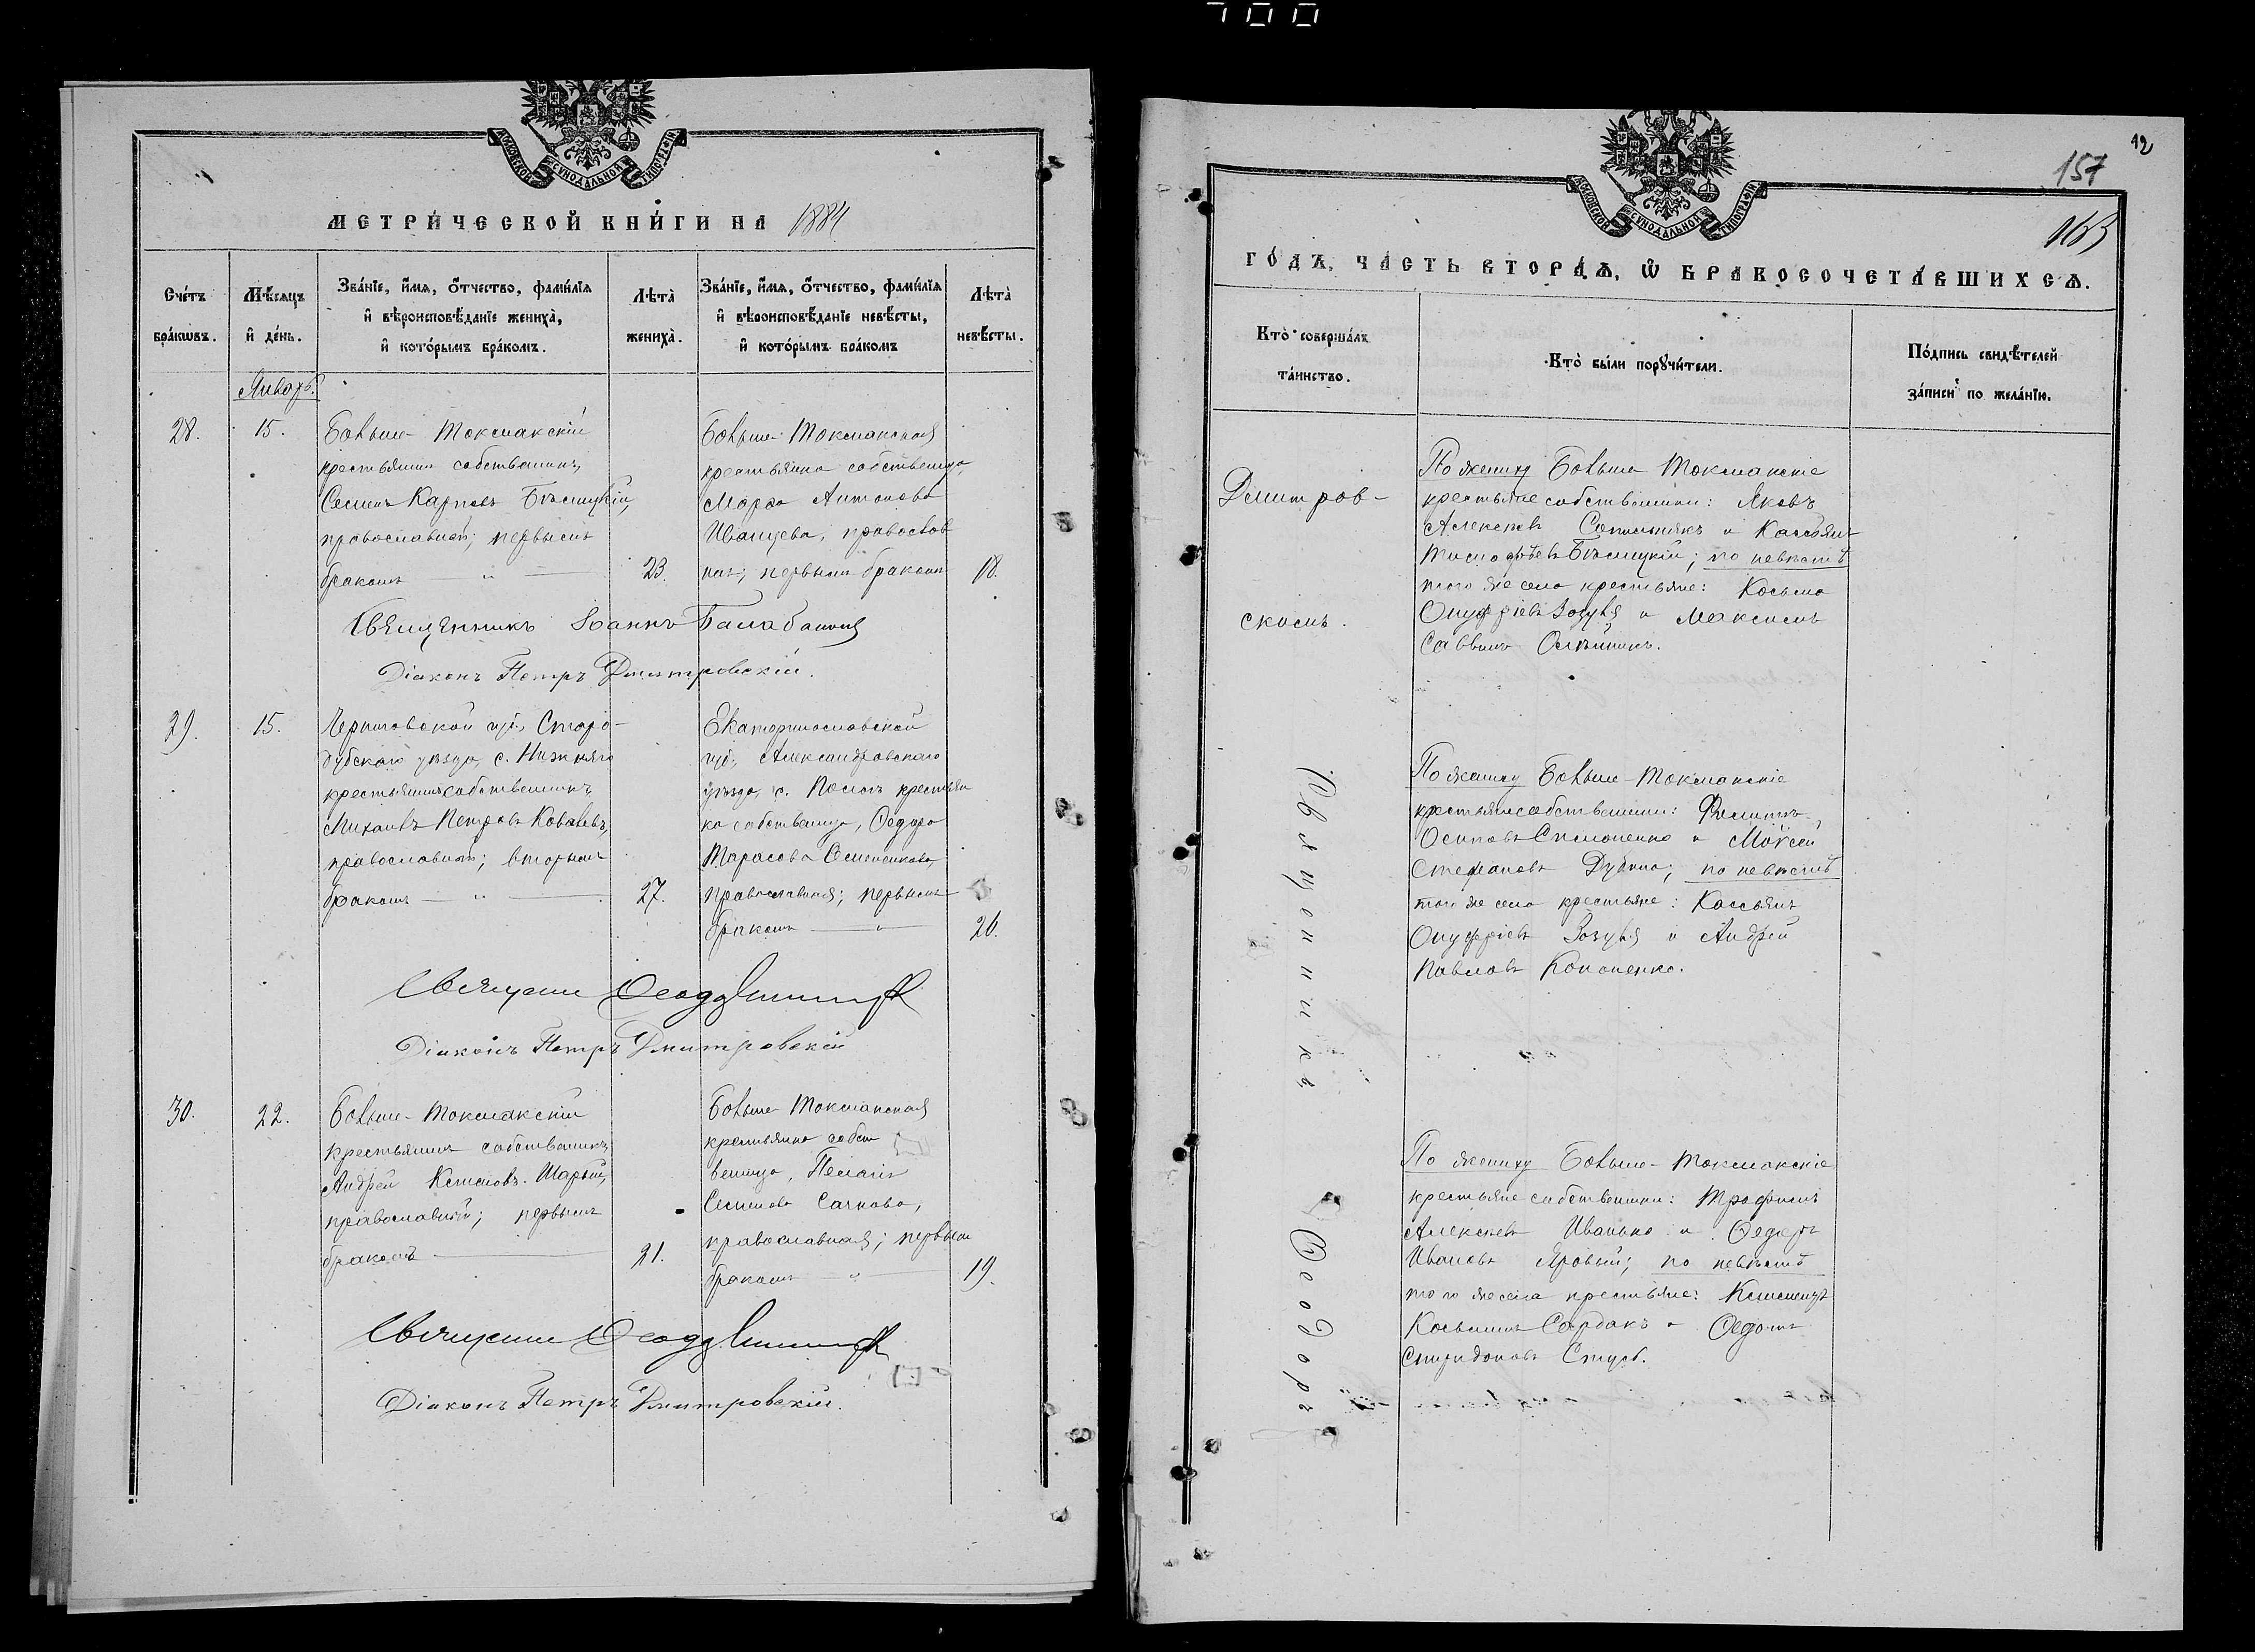 700
МОСКОВСКОЙ СѴНОДАЛЬНОЙ ТИПОГРАФІИ
МЕТРИ́ЧЕСКОЙ КНИ́ГИ НА 1884
Сче́тъ бра́кѡвъ.
Мѣ́сяцъ и де́нь.
Зва́нїе, и́мя, ѻ҆́тчество, фами́лїя и вѣроисповѣ́данїе жениха̀, и кото́рымъ бра́комъ.
Лѣта̀ жениха̀.
Зва́нїе, и́мя, ѻ҆́тчество, фами́лїя и вѣроисповѣ́данїе невѣ́сты, и кото́рымъ бра́комъ
Лѣта̀ невѣ́сты.
Январь.
28.
15.
Больше-Токмакскій
крестьянинъ собственникъ,
Семенъ Карповъ
православный; первымъ
бракомъ
23.
Больше-Токмакская
крестьянка собственница,
Марѳа Антонова
Иванцева, православ
ная; первымъ бракомъ
18.
Священникъ Іоаннъ
Діаконъ Петръ Дмитровскій.
29.
15.
Черниговской губ., Старо-
дубскаго уѣзда, с. Нижняго
крестьянинъ собственникъ
Михаилъ Петровъ Ковалевъ,
православный; вторымъ
бракомъ
27.
Екатеринославской
губ., Александровскаго
уѣзда, с. Пологъ крестьян
ка собственница, Ѳедора
Тарасова
православная; первымъ
бракомъ
20.
Священникъ
Діаконъ Петръ Дмитровскій
30.
22.
Больше-Токмакскій
крестьянинъ собственникъ
Андрей
православный; первымъ
бракомъ
21.
Больше-Токмакская
крестьянка собст
венница, Пелагія
Семенова Сачкова,
православная; первымъ
бракомъ
19.
Священникъ
Діаконъ Петръ Дмитровскій.
МОСКОВСКОЙ СѴНОДАЛЬНОЙ ТИПОГРАФІИ
12
157
163
ГО́ДЪ, ЧА́СТЬ ВТОРА́Ѧ, Ѡ҆ БРАКОСОЧЕТА́ВШИХСѦ.
Кто̀ соверша́лъ та́инство.
Кто̀ бы́ли порꙋчи́тели.
По́дпись свидѣ́телей за́писи по жела́нїю.
Священникъ Ѳеодоръ
Дмитров-
скимъ.
По жениху Больше Токмакскіе
крестьяне собственники: Яковъ
Алексѣевъ и Кассіянъ
по невѣстѣ
того же села крестьяне: Косьма
Онуфріевъ Зозуля и Максимъ
Саввинъ
По жениху Больше-Токмакскіе
крестьяне собственники: Филиппъ
Осиповъ и Моѵсей
Стефановъ Дубина; по невѣстѣ
того же села крестьяне: Кассіянъ
Онуфріевъ Зозуля и Андрей
Павловъ Кононенко.
По жениху Больше-Токмакскіе
крестьяне собственники: Трофимъ
Алексѣевъ Иванько и Ѳедоръ
Ивановъ Яровый; по невѣстѣ
того же села крестьяне:
Косьминъ Сердакъ и
Спиридоновъ